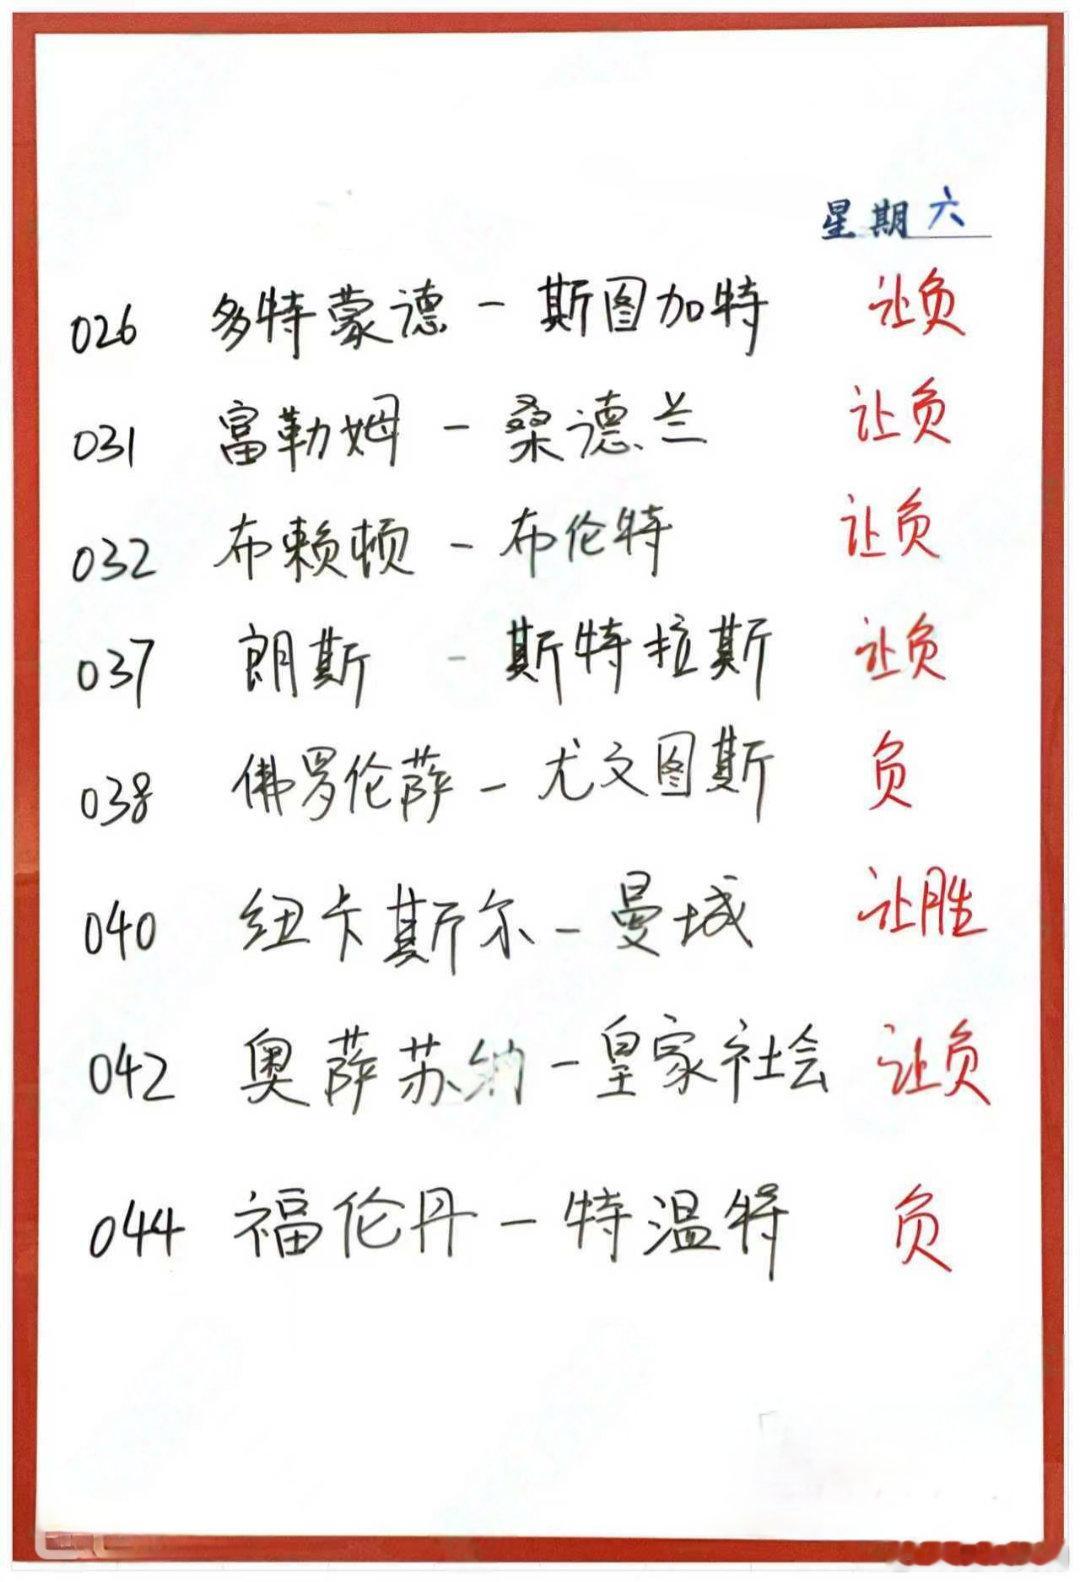 星期六
026 多特蒙德 - 斯图加特 让负
031 富勒姆 - 桑德兰 让负
032 布赖顿 - 布伦特 让负
037 朗斯 - 斯特拉斯 让负
038 佛罗伦萨 - 尤文图斯 负
040 纽卡斯尔 - 曼城 让胜
042 奥萨苏纳 - 皇家社会 让负
044 福伦丹 - 特温特 负